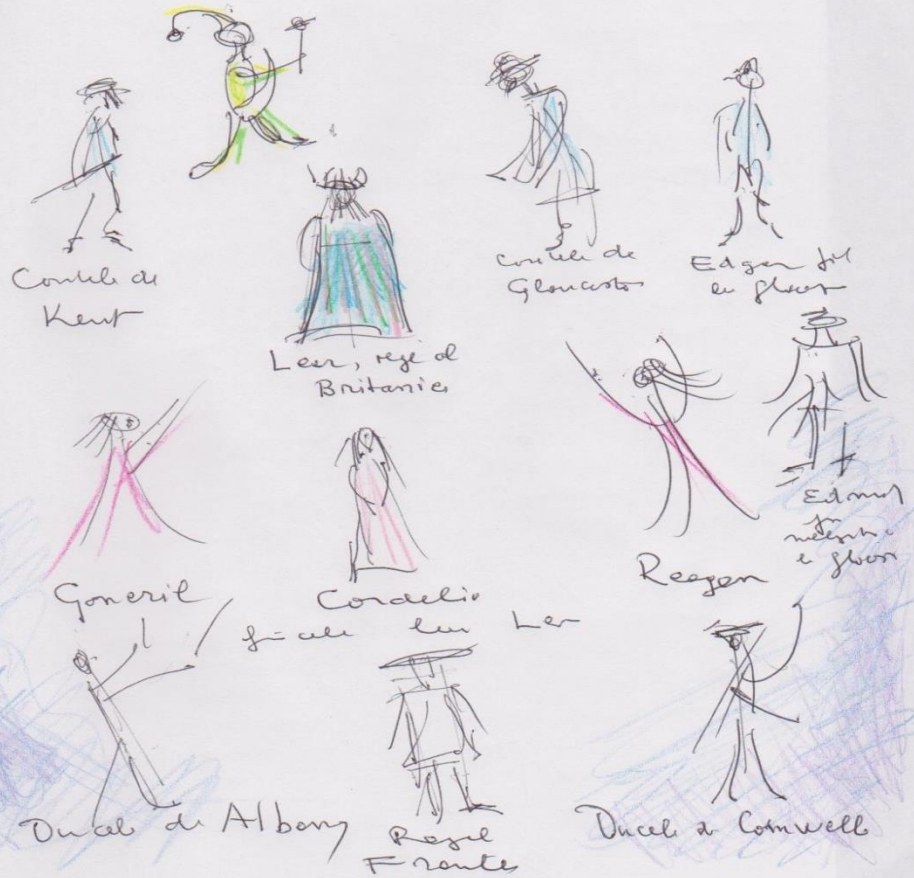 Contele de
Kent
Contele de
Gloucester
Edgar fiul
lui Gloucester
Lear, rege al
Britaniei
Edmund
fiu
nelegitim
Goneril
Cordelia
Reegan
fiicele lui Lear
Ducele de Albany
Regele
Frantei
Ducele de Cornwell